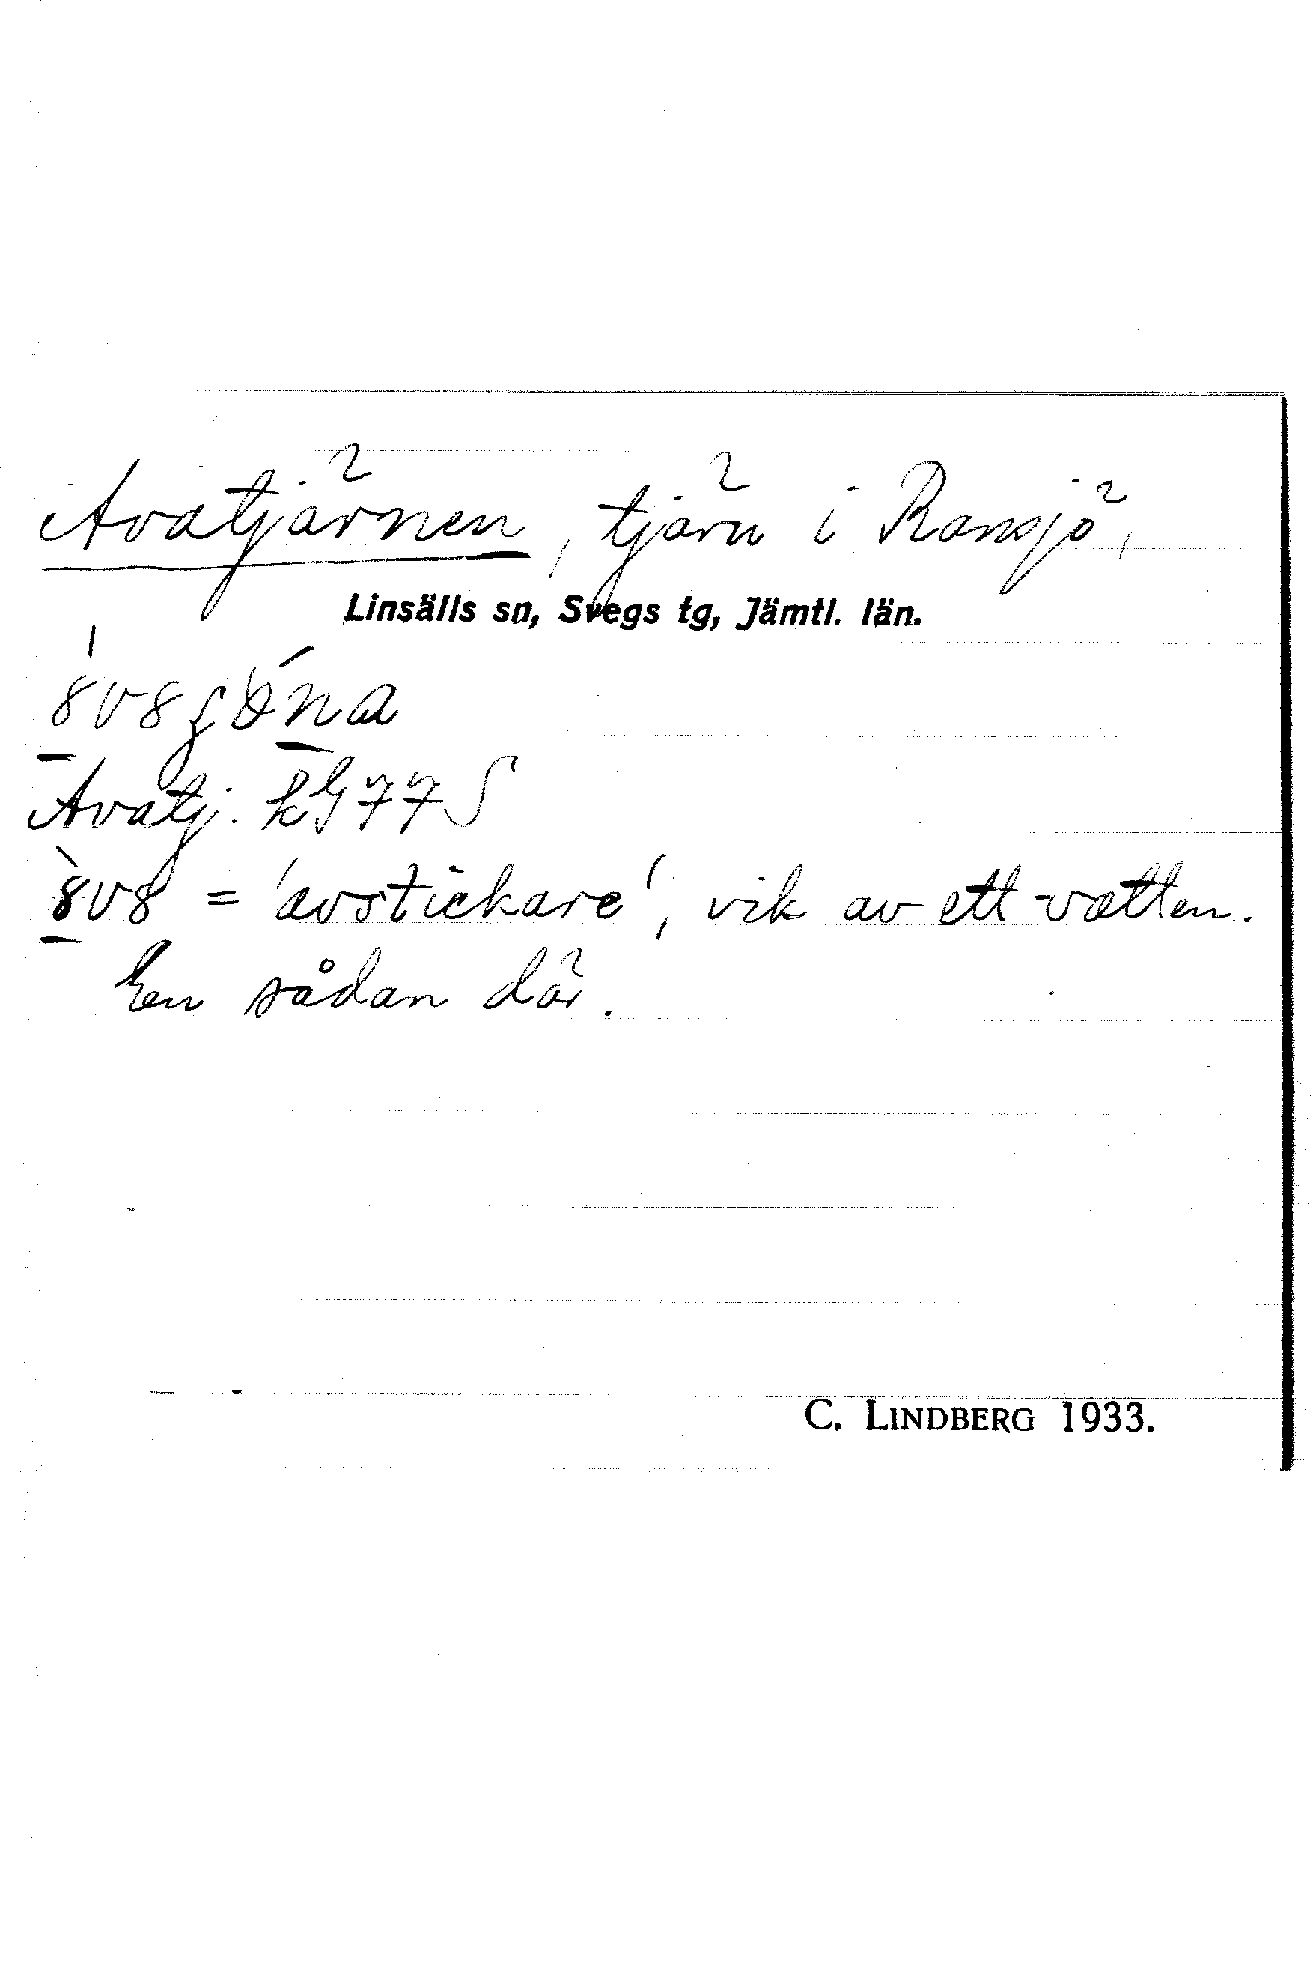 Avatjärnen, tjärn i Ransjö,
Linsälls sn, Svegs tg, Jämtl. län.
Avatj. kG 77 S
= 'avstickare', vik av ett vatten.
En sådan där.
C. LINDBERG 1933.